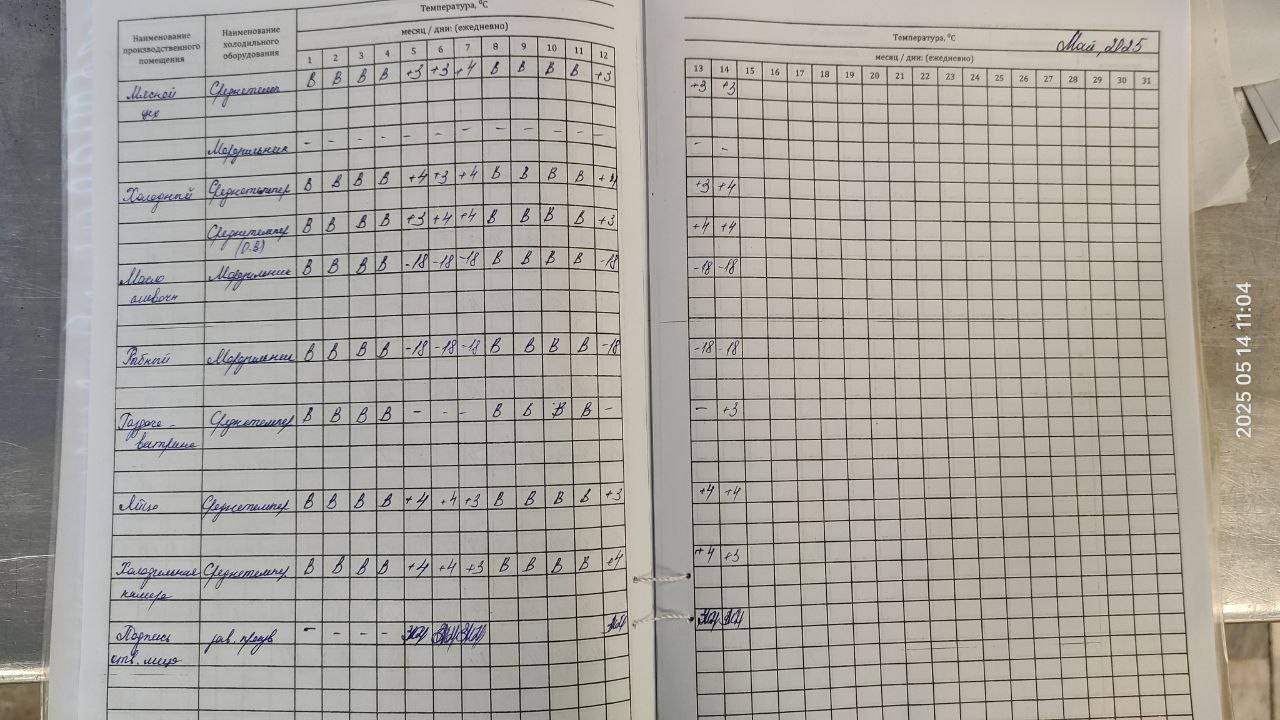 Температура, °С
Наименование производственного помещения
Наименование холодильного оборудования
месяц / дни: (ежедневно)
1 2 3 4 5 6 7 8 9 10 11 12
Мясной цех Среднетемп В В В В +3 +3 +4 В В В В +3
Морозильник - - - - - - - - - - - -
Холодный Среднетемпер В В В В +4 +3 +4 В В В В +4
Среднетемпер (О.З) В В В В +3 +4 +4 В В В В +3
Масло сливочн Морозильник В В В В -18 -18 -18 В В В В -18
Рыбный Морозильник В В В В -18 -18 -18 В В В В -18
Раздаче - витрина Среднетемпер В В В В - - - В В В В -
Яйцо Среднетемпер В В В В +4 +4 +3 В В В В +3
Холодильная камера Среднетемпер В В В В +4 +4 +3 В В В В +4
Подпись отв. лица зав. произв - - - -
Температура, °С
Май, 2025
месяц / дни: (ежедневно)
13 14 15 16 17 18 19 20 21 22 23 24 25 26 27 28 29 30 31
+3 +3
- -
+3 +4
+4 +4
-18 -18
-18 -18
- +3
+4 +4
+4 +3
2025 05 14 11:04